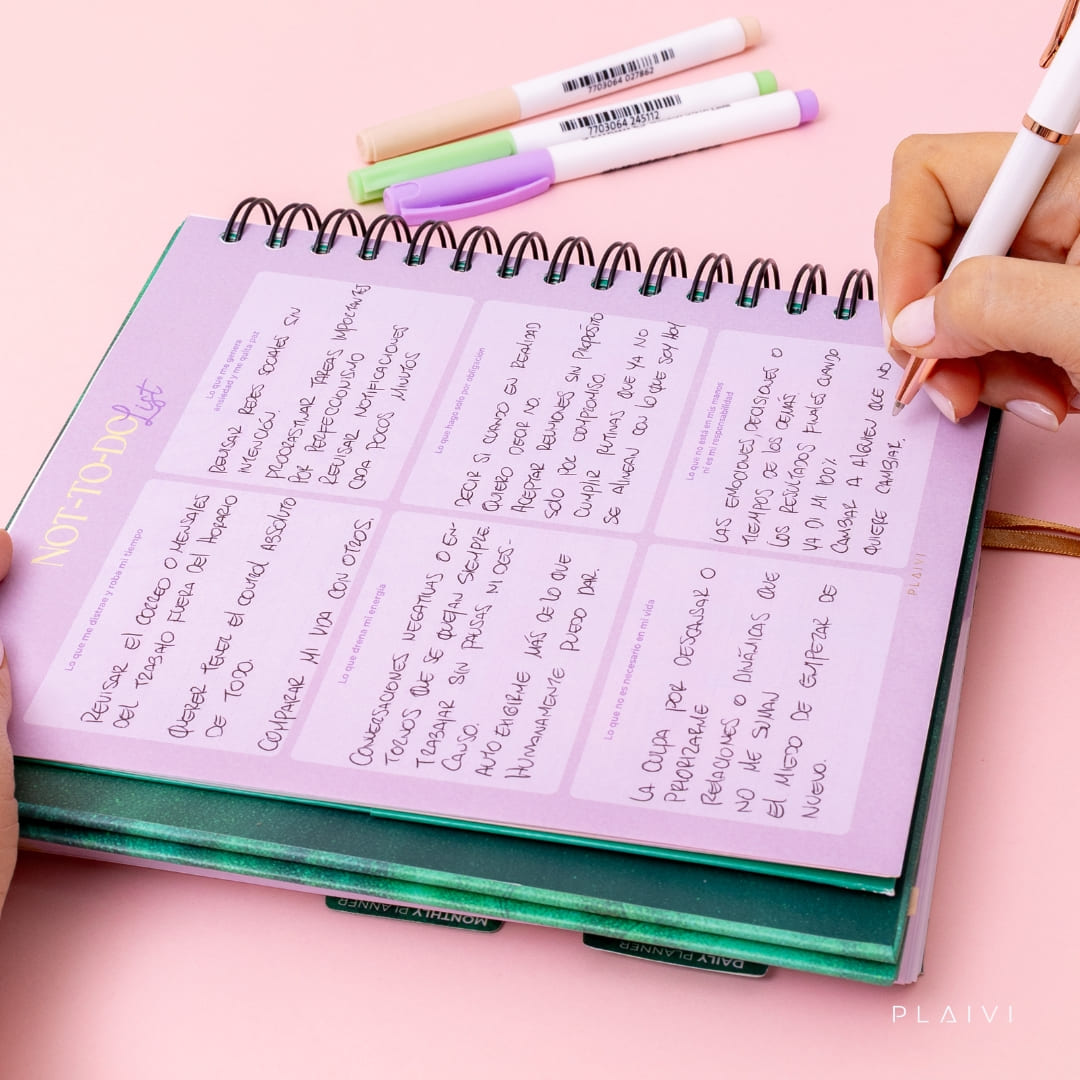 7703064 027862
7703064 245112
NOT-TO-DO
List
Lo que me distrae y roba mi tiempo
REVISAR EL CORREO O MENSAJES
DEL TRABAJO FUERA DEL HORARIO
QUERER TENER EL CONTROL ABSOLUTO
DE TODO.
COMPARAR MI VIDA CON OTROS.
Lo que me genera
ansiedad y me quita paz
REVISAR REDES SOCIALES SIN
INTENCIÓN
PROCASTINAR TAREAS IMPORTANTES
POR PERFECCIONISMO
REVISAR NOTIFICACIONES
CADA POCOS MINUTOS
Lo que drena mi energía
CONVERSACIONES NEGATIVAS O EN-
TORNOS QUE SE QUEJAN SIEMPRE.
TRABAJAR SIN PAUSAS NI DES-
CANSO.
AUTO EXIGIRME MÁS DE LO QUE
HUMANAMENTE PUEDO DAR.
Lo que hago solo por obligación
DECIR SI CUANDO EN REALIDAD
QUIERO DECIR NO.
ACEPTAR REUNIONES SIN PROPÓSITO
SOLO POR COMPROMISO.
CUMPLIR RUTINAS QUE YA NO
SE ALINEAN CON LO QUE SOY HOY
Lo que no es necesario en mi vida
LA CULPA POR DESCANSAR O
PRIORIZARME
RELACIONES O DINÁMICAS QUE
NO ME SUMAN
EL MIEDO DE EMPEZAR DE
NUEVO.
Lo que no está en mis manos
ni es mi responsabilidad
LAS EMOCIONES, DECISIONES O
TIEMPOS DE LOS DEMÁS
LOS RESULTADOS FINALES CUANDO
YA DI MI 100%
CAMBIAR A ALGUIEN QUE NO
QUIERE CAMBIAR.
PLAIVI
MONTHLY PLANNER
DAILY PLANNER
PLAIVI